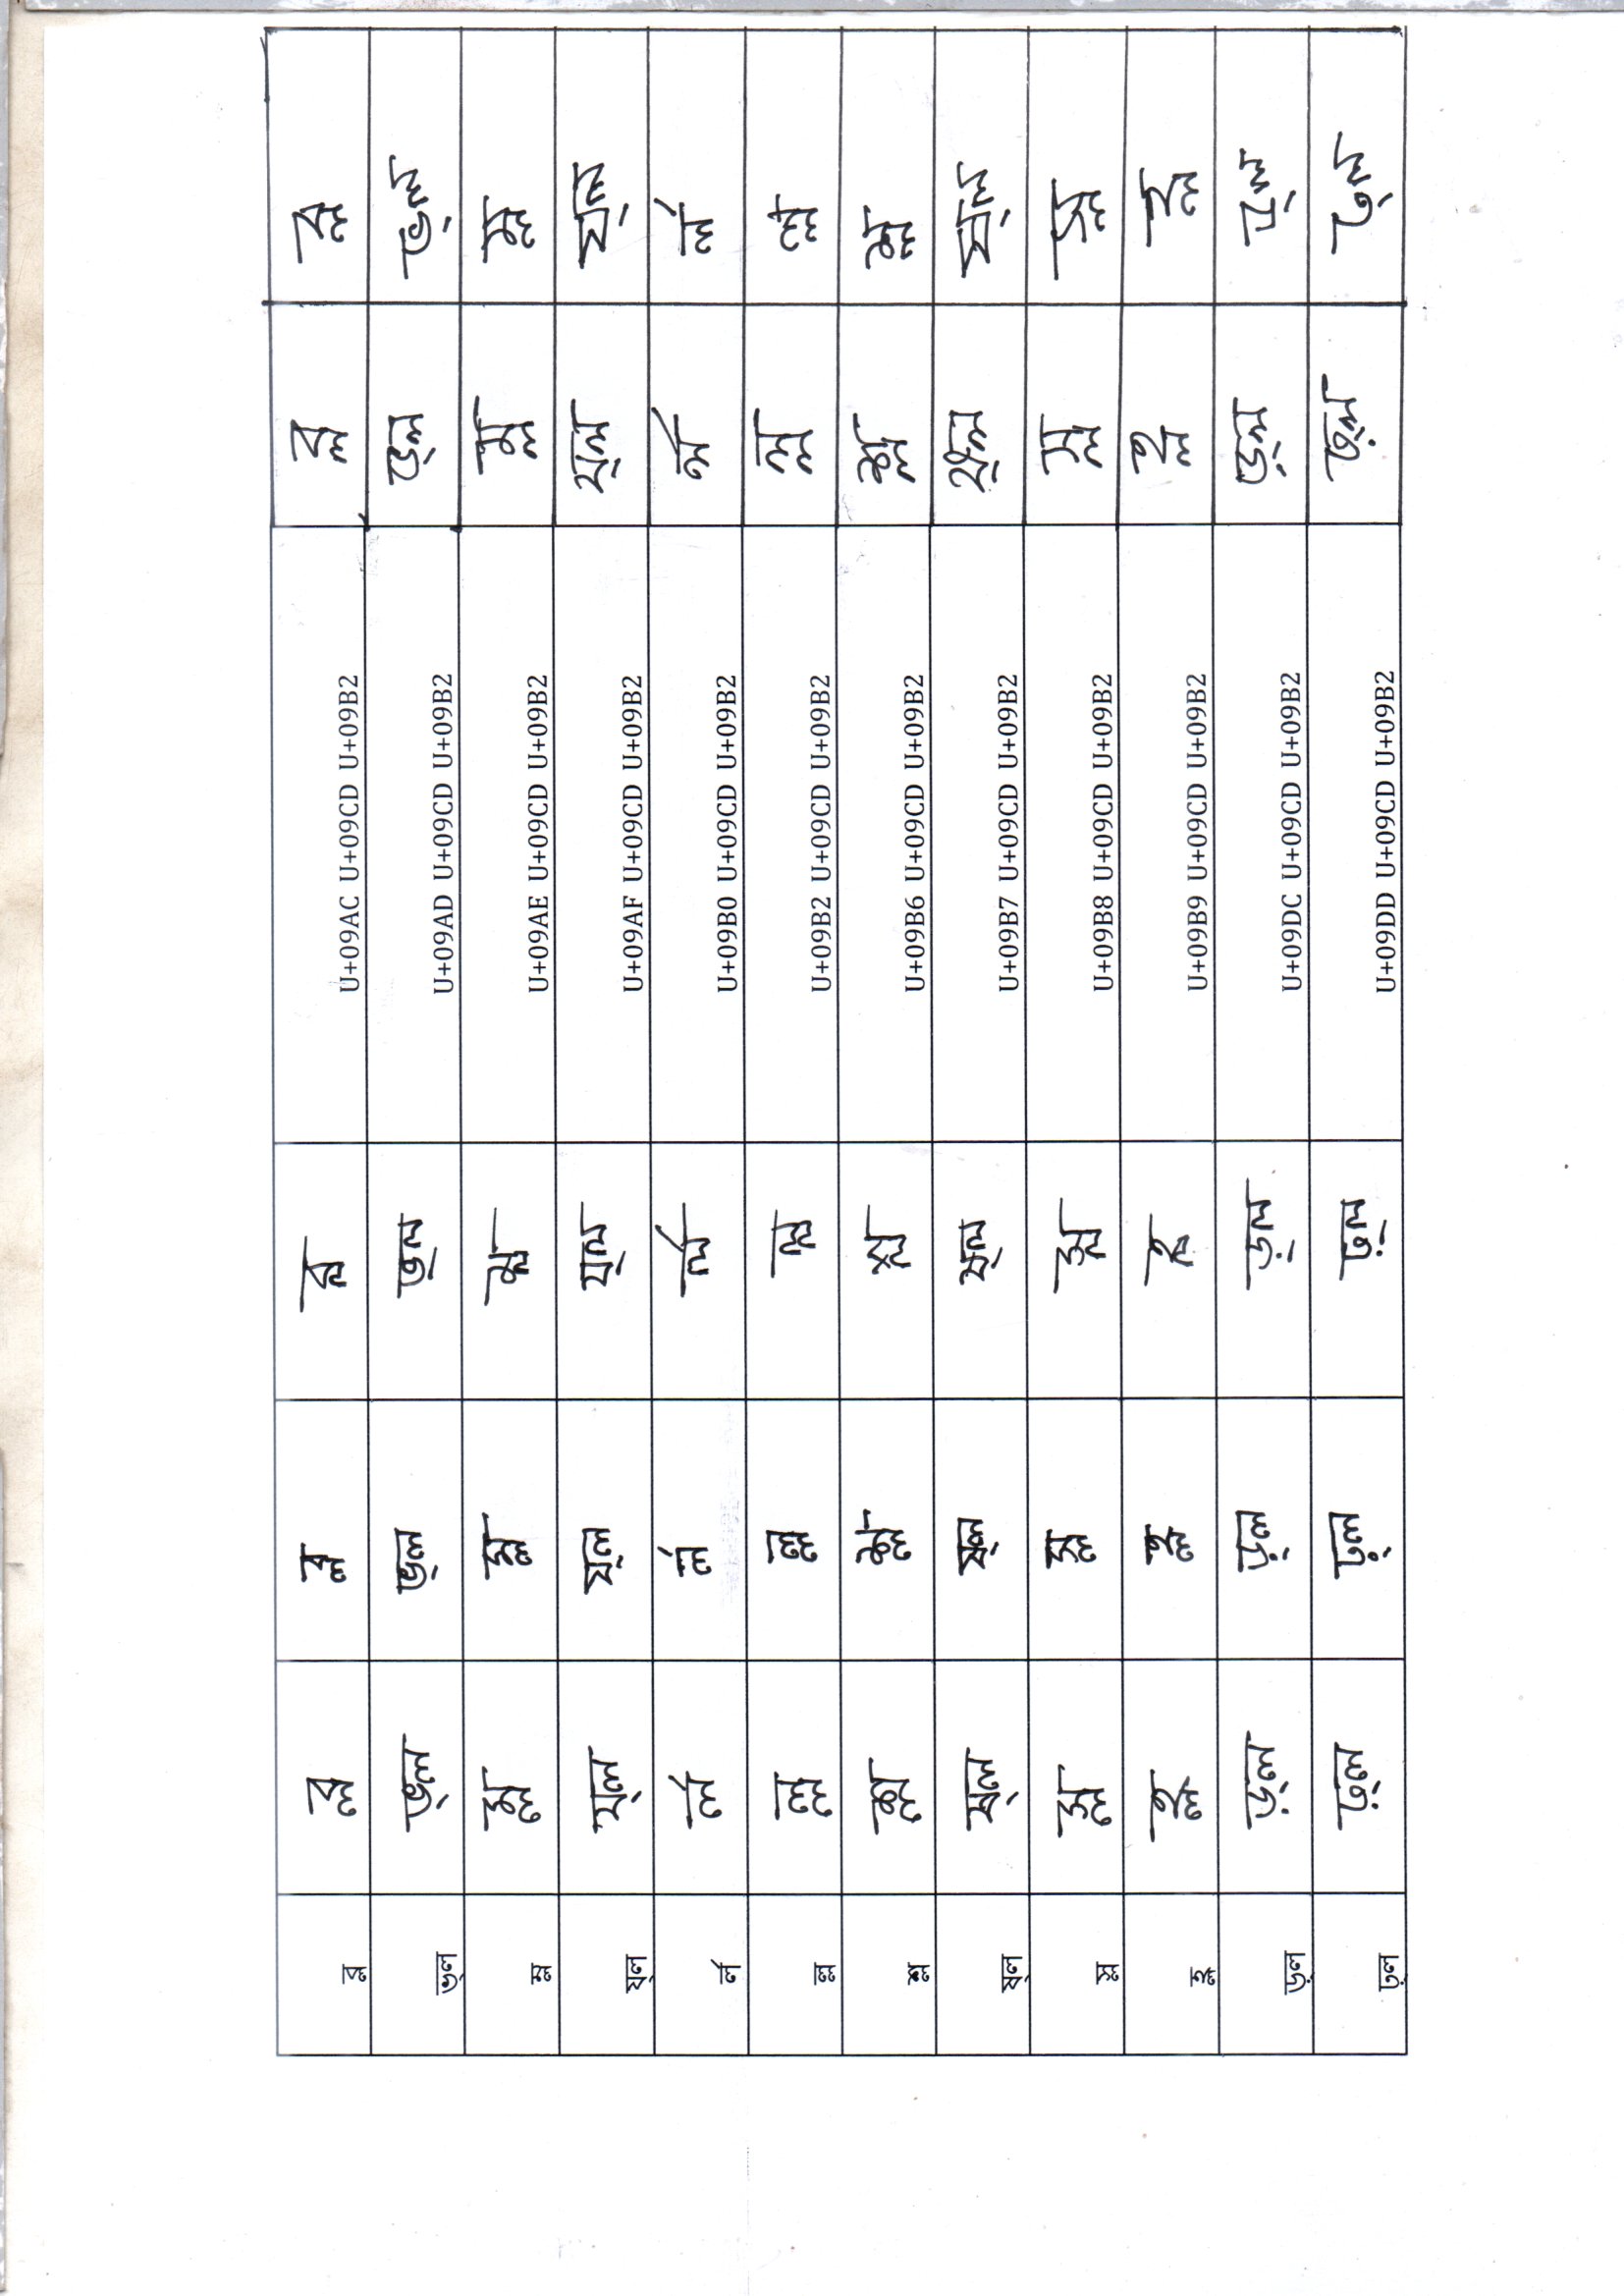 ব্ল ব্ল ব্ল ব্ল U+09AC U+09CD U+09B2 ব্ল ব্ল
ভ্‌ল ভ্‌ল ভ্‌ল ভ্‌ল U+09AD U+09CD U+09B2 ভ্‌ল ভ্‌ল
ম্ল ম্ল ম্ল ম্ল U+09AE U+09CD U+09B2 ম্ল ম্ল
য্‌ল য্‌ল য্‌ল য্‌ল U+09AF U+09CD U+09B2 য্‌ল য্‌ল
র্ল র্ল র্ল র্ল U+09B0 U+09CD U+09B2 র্ল র্ল
ল্ল ল্ল ল্ল ল্ল U+09B2 U+09CD U+09B2 ল্ল ল্ল
শ্ল শ্ল শ্ল শ্ল U+09B6 U+09CD U+09B2 শ্ল শ্ল
ষ্‌ল ষ্‌ল ষ্‌ল ষ্‌ল U+09B7 U+09CD U+09B2 ষ্‌ল ষ্‌ল
স্ল স্ল স্ল স্ল U+09B8 U+09CD U+09B2 স্ল স্ল
হ্ল হ্ল হ্ল হ্ল U+09B9 U+09CD U+09B2 হ্ল হ্ল
ড়্‌ল ড়্‌ল ড়্‌ল ড়্‌ল U+09DC U+09CD U+09B2 ড়্‌ল ড়্‌ল
ঢ়্‌ল ঢ়্‌ল ঢ়্‌ল ঢ়্‌ল U+09DD U+09CD U+09B2 ঢ়্‌ল ঢ়্‌ল